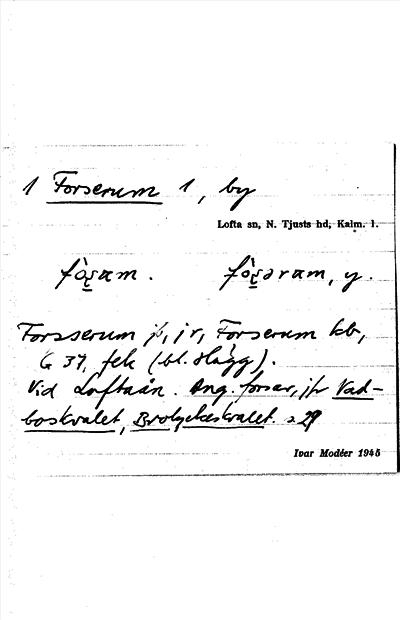 1 Forserum 1, by
Lofta sn, N. Tjusts hd, Kalm. l.
fò̱sam. fò̱səram, y.
Forsserum jb, jr, Forserum kb,
G 37, fek (bl. slägg).
Vid Loftaån. Ang. forsar, jfr Vad-
boskvalet, Brolyckeskvalet. s 29
Ivar Modéer 1945